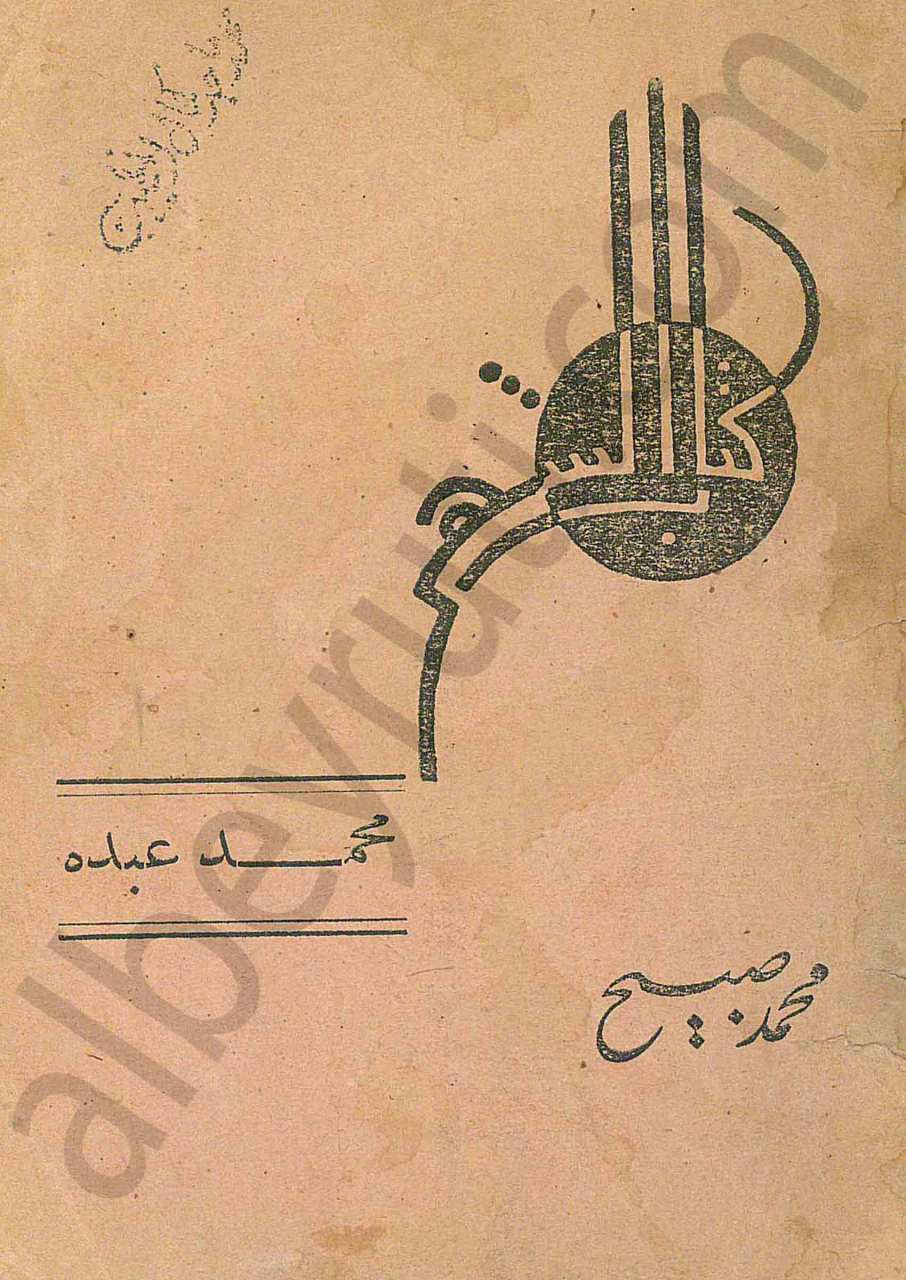 كتاب الشهر
محمد عبده
محمد صبيح
albeyruti.com